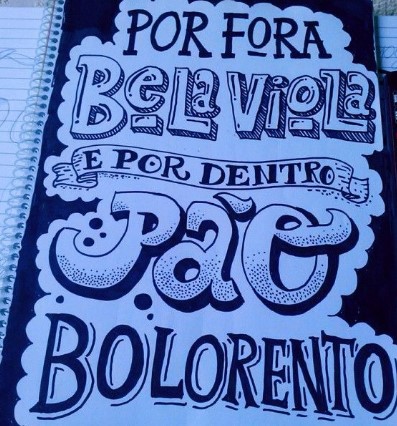 POR FORA
BELA VIOLA
E POR DENTRO
PÃO
BOLORENTO